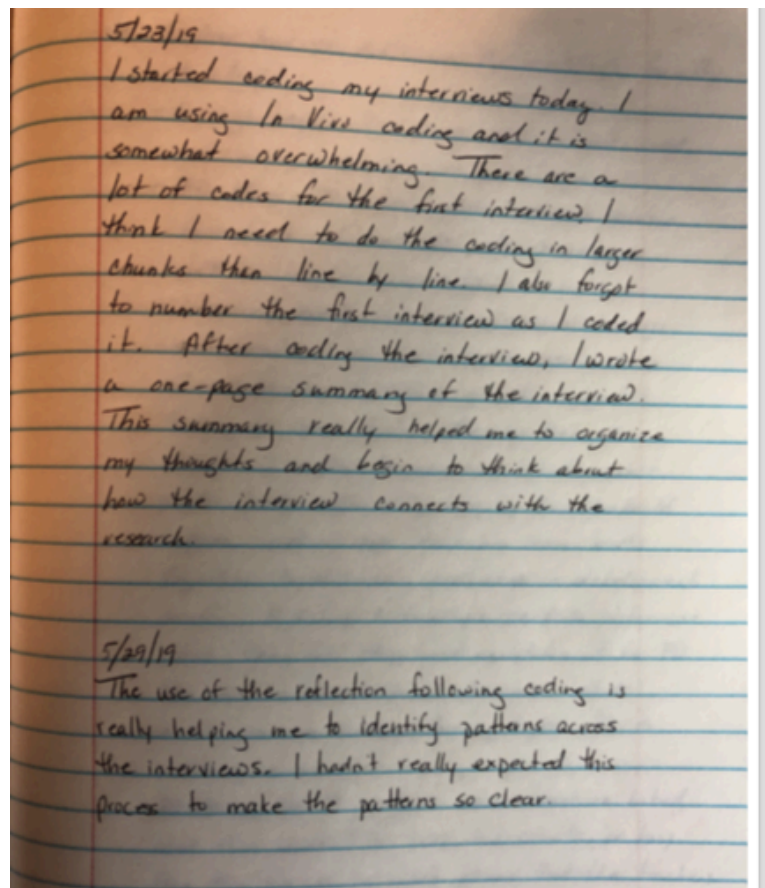 5/23/19
I started coding my interviews today. I
am using In Vivo coding and it is
somewhat overwhelming. There are a
lot of codes for the first interview. I
think I need to do the coding in larger
chunks than line by line. I also forgot
to number the first interview as I coded
it. After coding the interview, I wrote
a one-page summary of the interview.
This summary really helped me to organize
my thoughts and begin to think about
how the interview connects with the
research.
5/29/19
The use of the reflection following coding is
really helping me to identify patterns across
the interviews. I hadn't really expected this
process to make the patterns so clear.